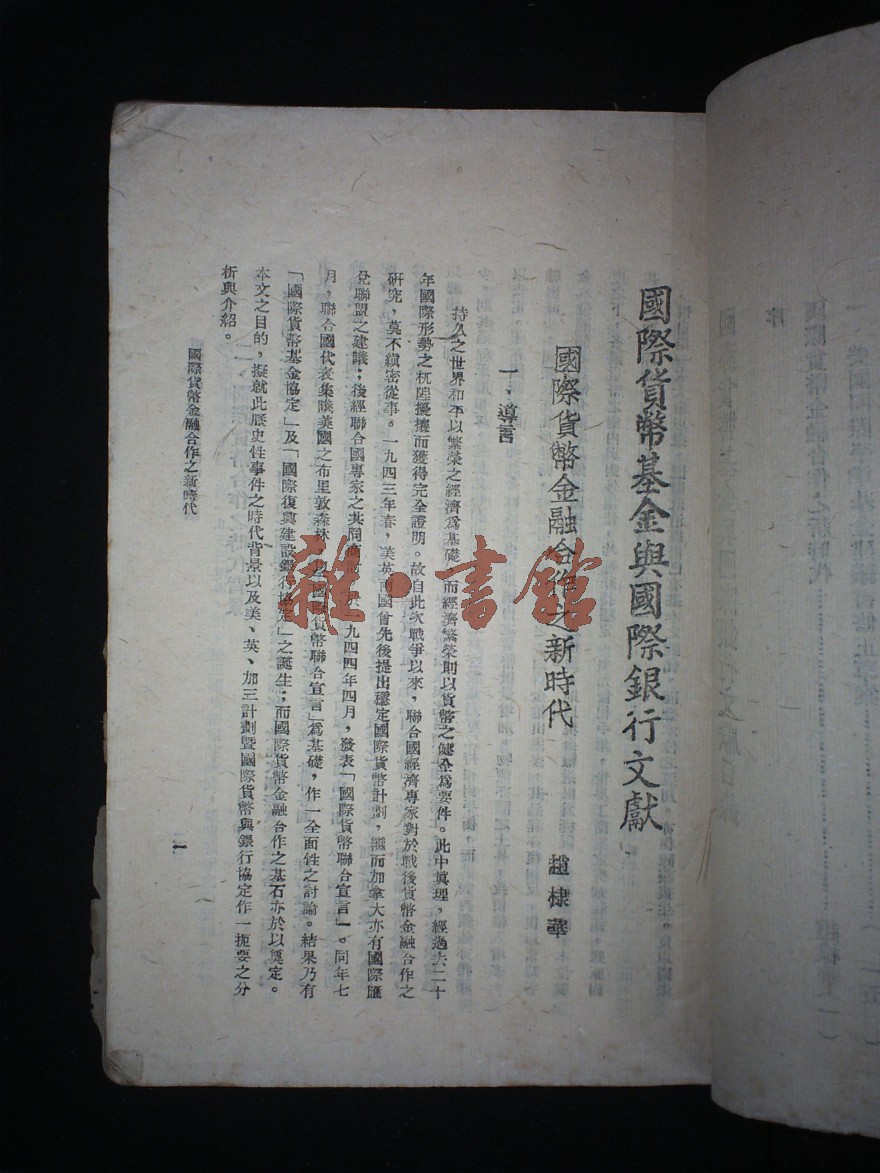 國際貨幣基金與國際銀行文獻
國際貨幣金融合作之新時代
趙棣華
一、導言
持久之世界和平以繁榮之經濟爲基礎，而經濟繁榮則以貨幣之健全爲要件。此中眞理，經過去二十
年國際形勢之杌隉擾攘而獲得完全證明。故自此次戰爭以來，聯合國經濟專家對於戰後貨幣金融合作之
研究，莫不縝密從事。一九四三年春，美英兩國會先後提出穩定國際貨幣計劃，繼而加拿大亦有國際匯
兌聯盟之建議；後經聯合國專家之共同商討，於一九四四年四月，發表「國際貨幣聯合宣言」。同年七
月，聯合國代表集議美國之布里敦森林，以「國際貨幣聯合宣言」爲基礎，作一全面性之討論。結果乃有
「國際貨幣基金協定」及「國際復興建設銀行協定」之誕生；而國際貨幣金融合作之基石亦於以奠定。
本文之目的，擬就此歷史性事件之時代背景以及美、英、加三計劃暨國際貨幣與銀行協定作一扼要之分
析與介紹。
國際貨幣金融合作之新時代
一
雜·書館
序
國際貨幣金融合作之新時代